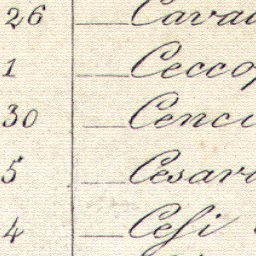 26 Cava
1 Cecco
30 Cenci
5 Cesari
4 Cesi